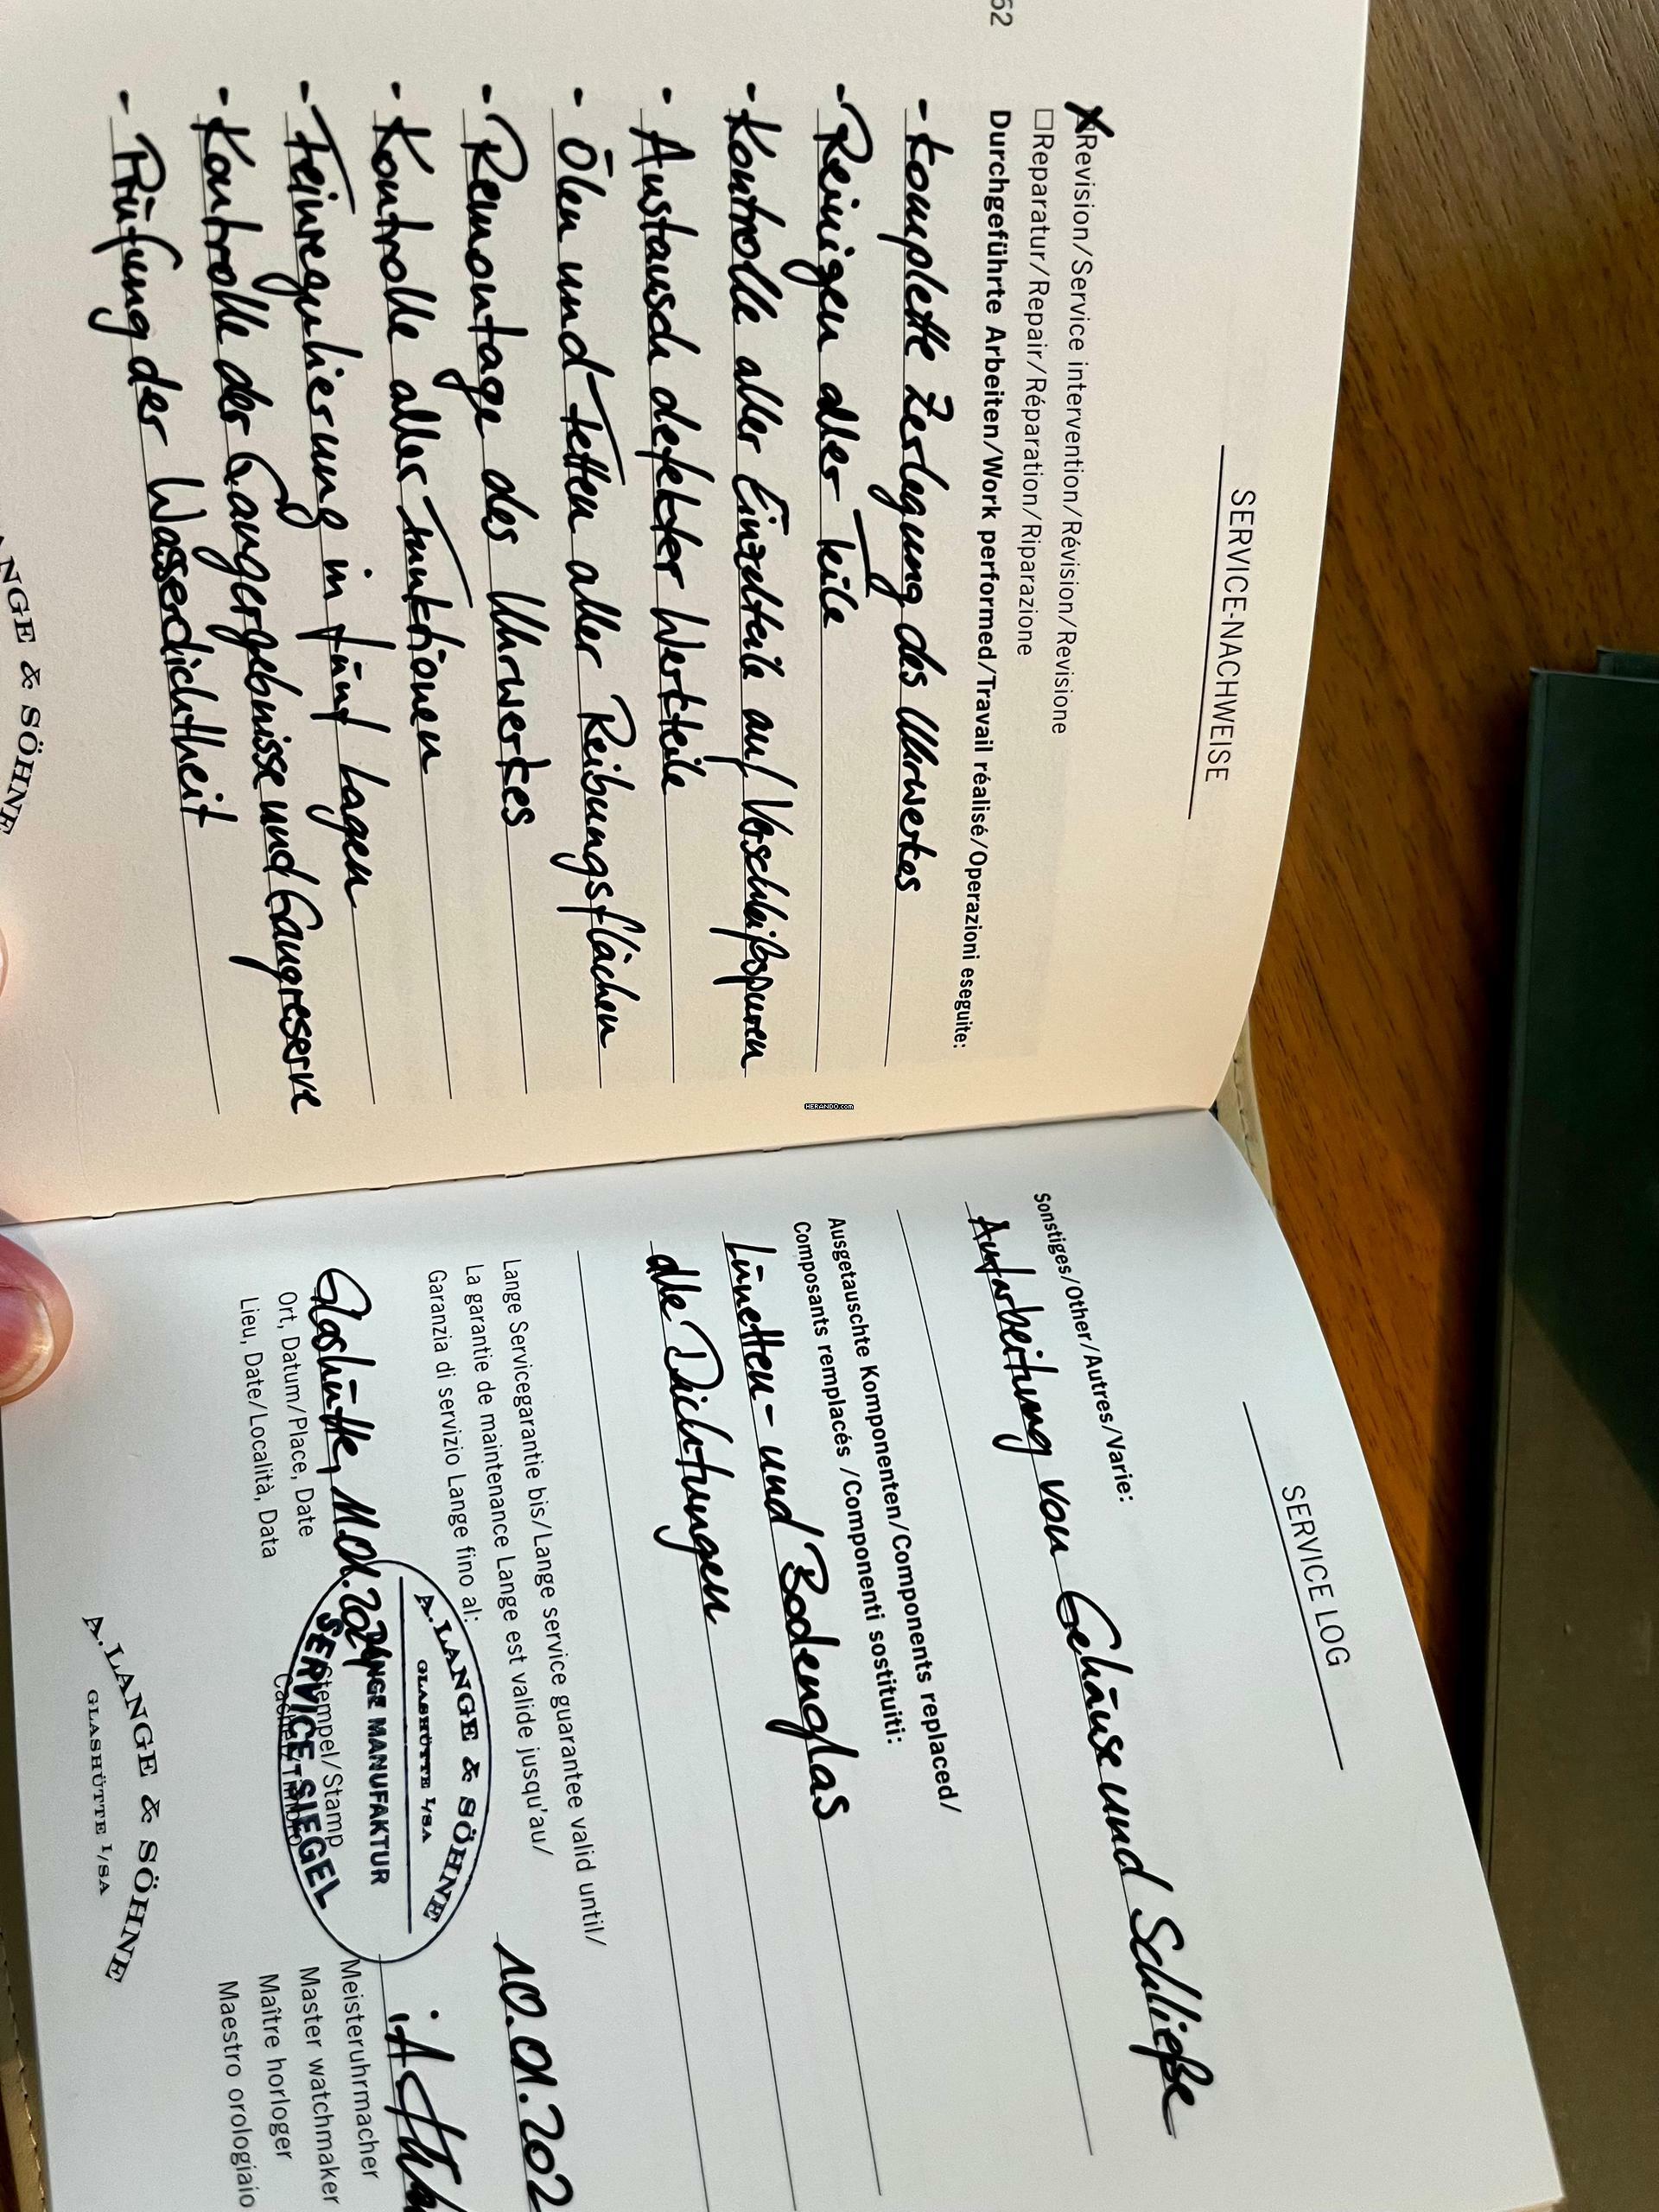 SERVICE-NACHWEISE
Revision/Service intervention/Révision/Revisione
Reparatur/Repair/Réparation/Riparazione
Durchgeführte Arbeiten/Work performed/Travail réalisé/Operazioni eseguite:
- komplette Zerlegung des Uhrwerkes
- Reinigen aller Teile
- Kontrolle aller Einzelteile auf Verschleißspuren
- Austausch defekter Werkteile
- Ölen und Fetten aller Reibungsflächen
- Remontage des Uhrwerkes
- Kontrolle aller Funktionen
- Feinregulierung in fünf Lagen
- Kontrolle der Gangergebnisse und Gangreserve
- Prüfung der Wasserdichtheit
62
NGE & SÖHNE
HERANDO.com
SERVICE LOG
Sonstiges/Other/Autres/Varie:
Aufarbeitung von Gehäuse und Schließe
Ausgetauschte Komponenten/Components replaced/
Composants remplacés /Componenti sostituiti:
Lünetten- und Bodenglas
alle Dichtungen
Lange Servicegarantie bis/Lange service guarantee valid until/
La garantie de maintenance Lange est valide jusqu'au/
Garanzia di servizio Lange fino al:
10.01.202
Glashütte, 11.01.202
Ort, Datum/Place, Date
Lieu, Date/Località, Data
A. LANGE & SÖHNE
GLASHÜTTE I/SA
LANGE MANUFAKTUR
SERVICE-SIEGEL
Stempel/Stamp
Cachet/Timbro
Meisteruhrmacher
Master watchmaker
Maître horloger
Maestro orologiaio
A. LANGE & SÖHNE
GLASHÜTTE I/SA